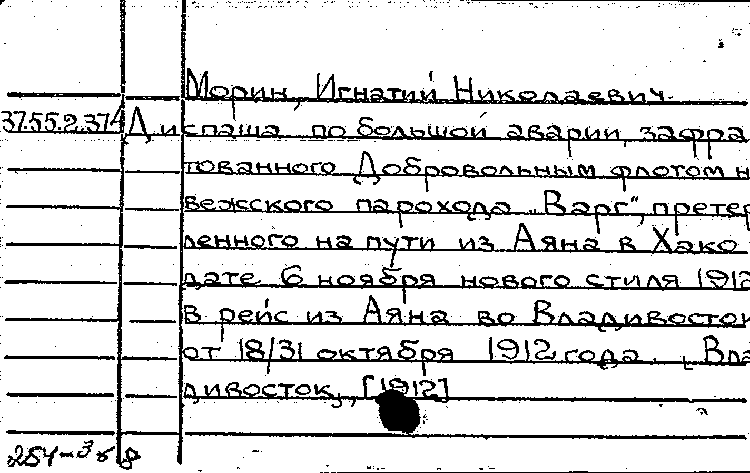 Морин, Игнатий Николаевич.
37.55.2.374 Диспаша по большой аварии, зафра
тованного Добровольным флотом н
вежского парохода „Варг", претер
ленного на пути из Аяна в Хако
дате 6 ноября нового стиля 1912
в рейс из Аяна во Владивосток
от 18/31 октября 1912 года. [Вла
дивосток, [1912]